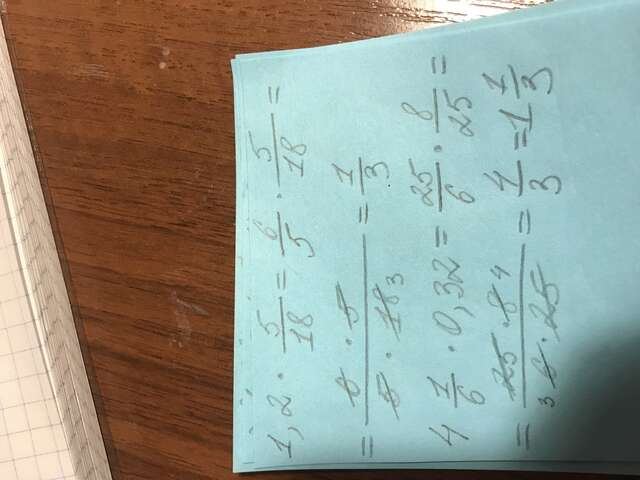 1,2 · 5/18 = 6/5 · 5/18 =
= 6 · 5 / 5 · 18 3 = 1/3
4 1/6 · 0,32 = 25/6 · 8/25 =
= 25 · 8 4 / 3 6 · 25 = 4/3 = 1 1/3